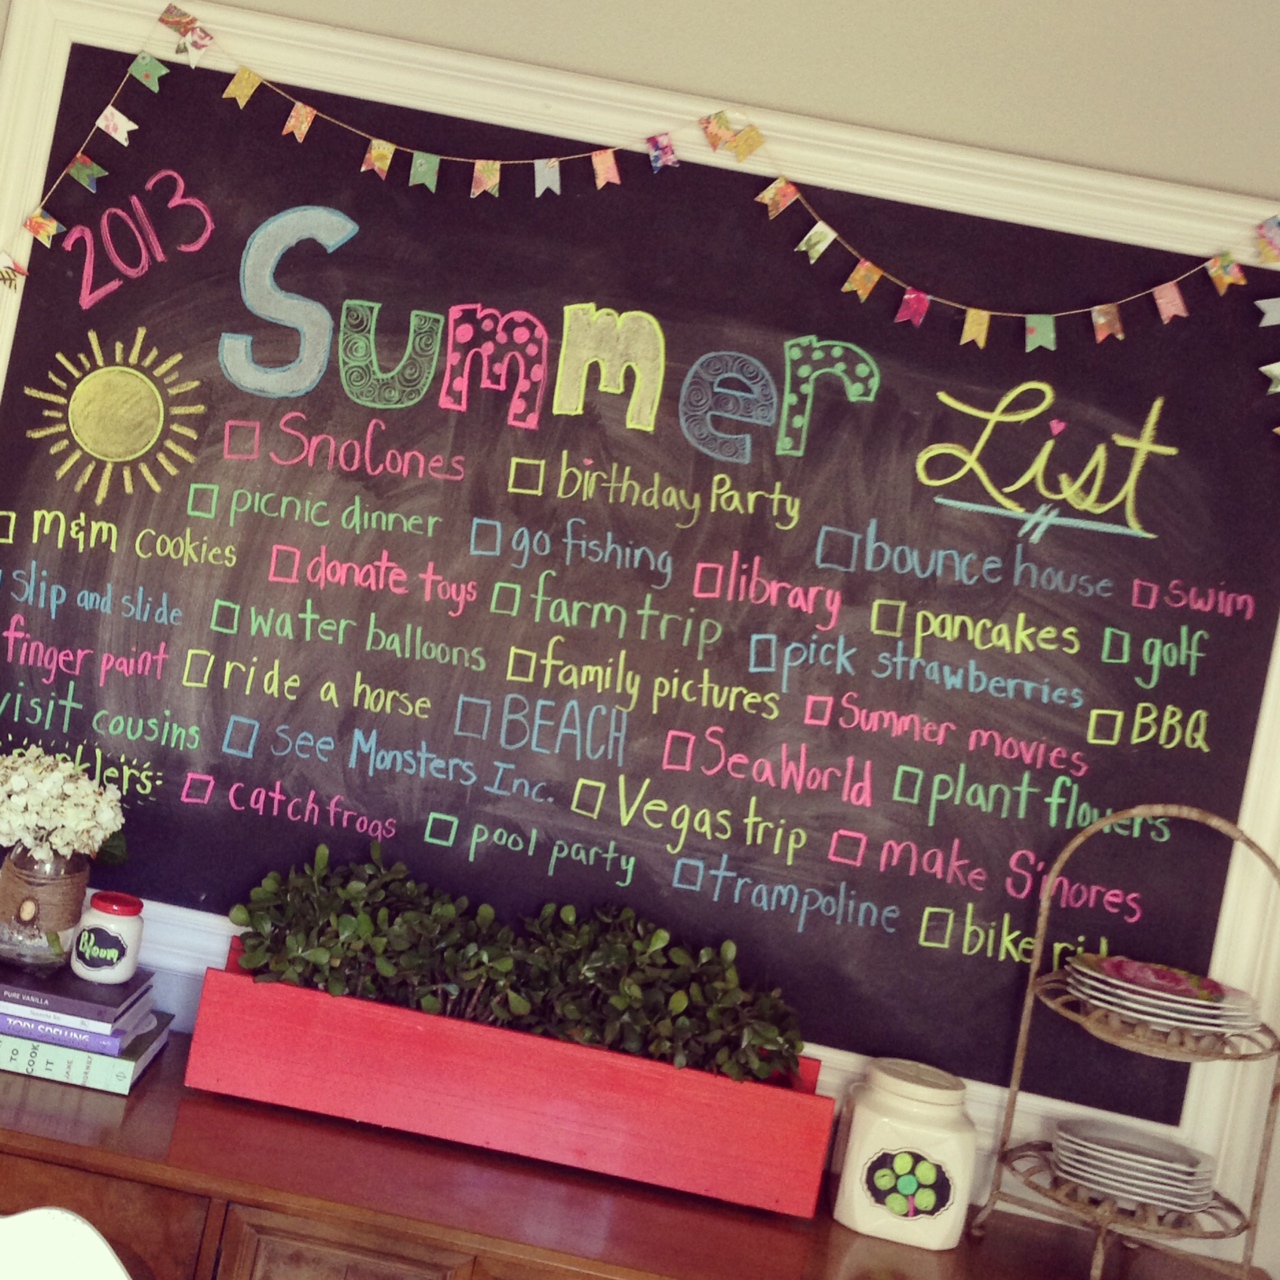 2013
Summer List
SnoCones birthday Party
picnic dinner go fishing bounce house swim
M&M cookies donate toys library pancakes golf
slip and slide water balloons farm trip pick strawberries BBQ
finger paint ride a horse family pictures Summer movies
visit cousins see Monsters Inc. BEACH SeaWorld plant flowers
catch frogs pool party Vegas trip make S'mores
trampoline bike
Bloom
PURE VANILLA
TORI SPELLING
TO COOK IT